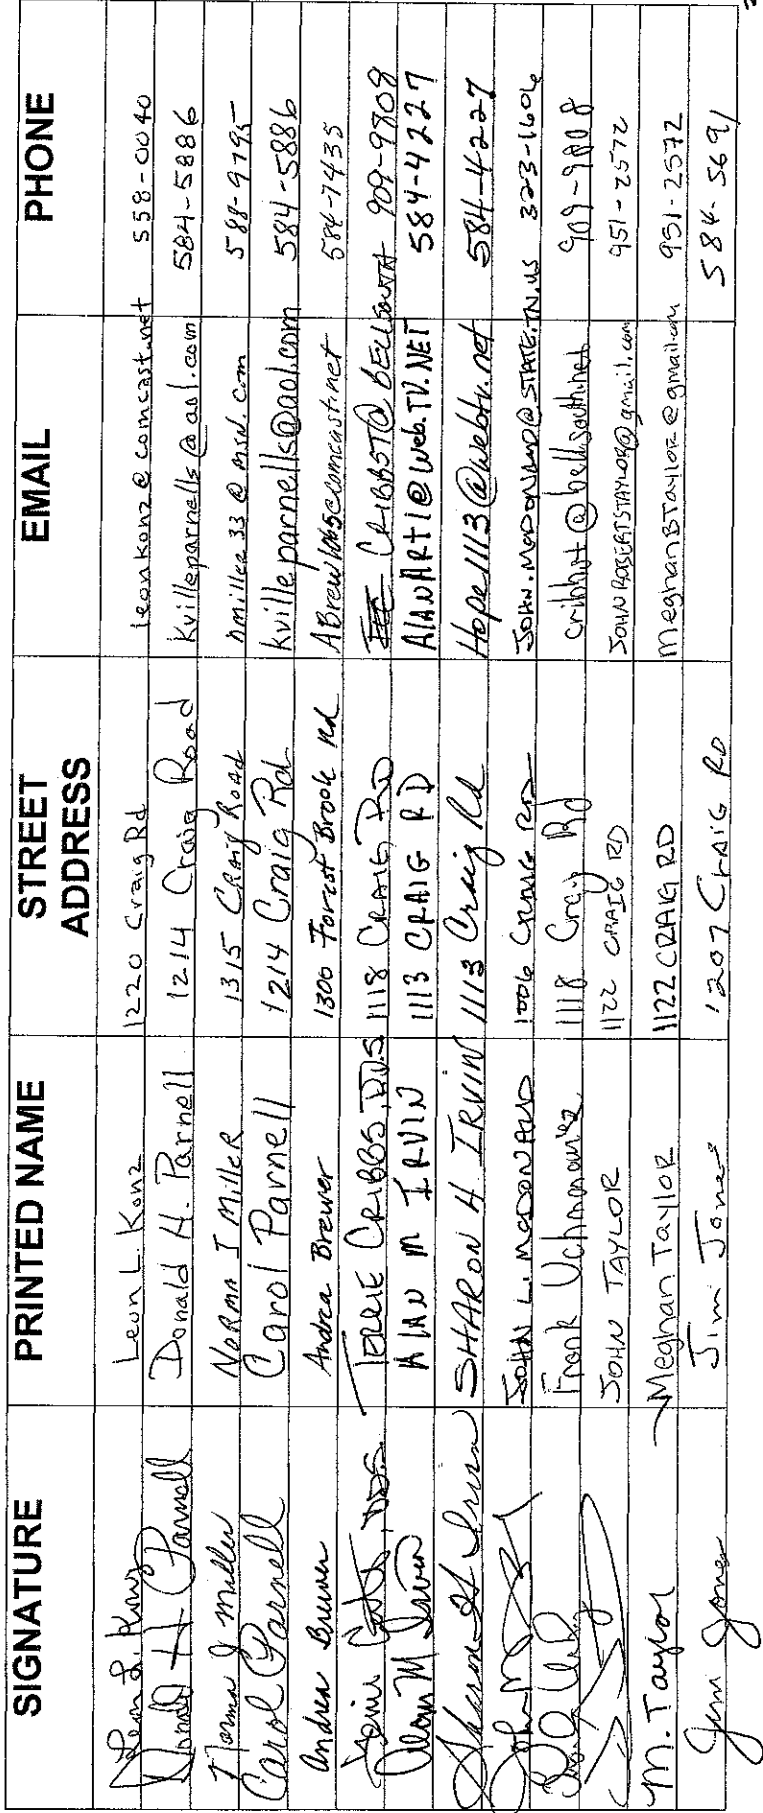 SIGNATURE PRINTED NAME STREET ADDRESS EMAIL PHONE
Leon L. Konz Leon L. Konz 1220 Craig Rd leonkonz@comcast.net 558-0040
Donald H Parnell Donald H. Parnell 1214 Craig Road Kvilleparnells@aol.com 584-5886
Norma J Miller NORMA J MILLER 1315 CRAIG ROAD nmiller33@msn.com 588-9795
Carol Parnell Carol Parnell 1214 Craig Rd Kvilleparnells@aol.com 584-5886
Andrea Brewer Andrea Brewer 1306 Forrest Brook Rd ABrew1065@comcast.net 584-7435
TERRIE CRIBBS, DDS 1118 CRAIG RD CRIBBST@BELLSOUTH 909-9808
Alan M Irvin ALAN M IRVIN 1113 CRAIG RD ALANART1@Web.TV.NET 584-4227
Sharon H Irvin SHARON H. IRVIN 1113 Craig Rd Hope1113@webtv.net 584-4227
JOHN L. MCDONALD 1006 CRAIG RD JOHN.MCDONALD@STATE.TN.US 323-1606
Frank 1118 Craig Rd cribbst@bellsouth.net 909-9808
JOHN TAYLOR 1122 CRAIG RD JOHNROBERTSTAYLOR@gmail.com 951-2572
M. Taylor Meghan Taylor 1122 CRAIG RD MeghanBTaylor@gmail.com 951-2572
Jim Jones Jim Jones 1207 CRAIG RD 584-5691